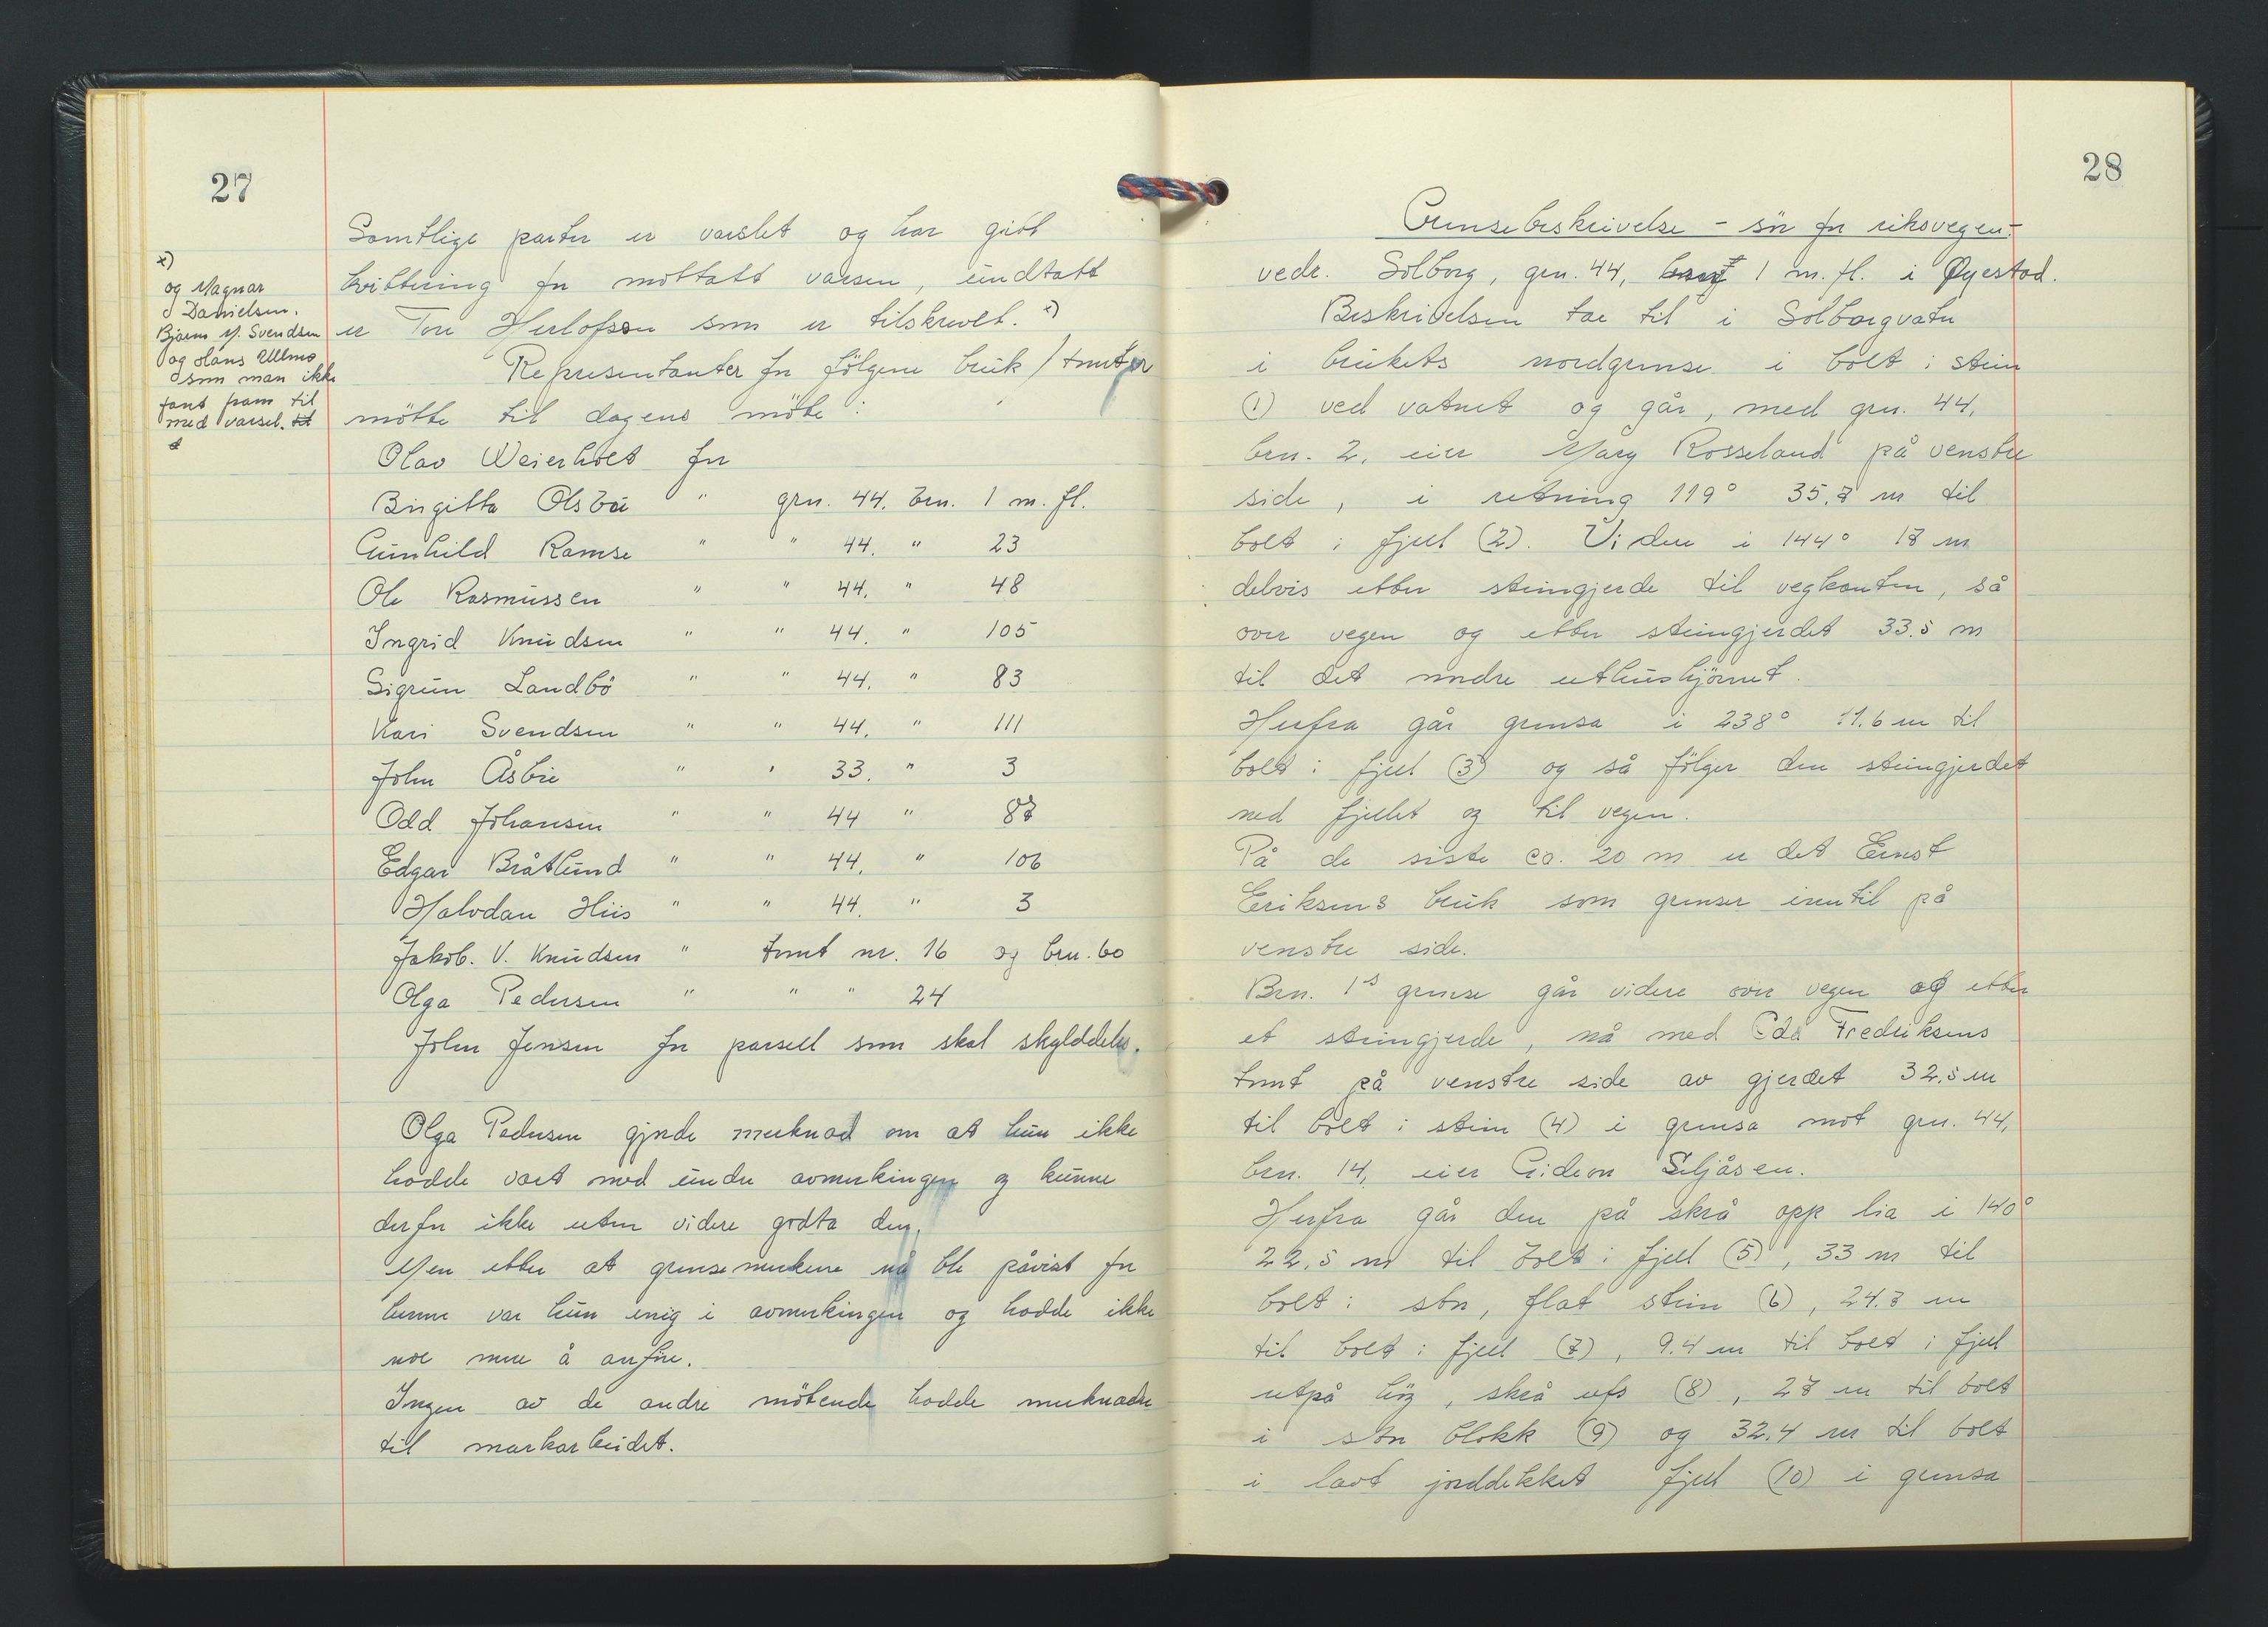 27
Samtlige parter er varslet og har gitt
kvittering for mottatt varsel, undtatt
er Tore Herlofson som er tilskrevet. x)
x)
og Magnar
Danielsen.
Bjørn M. Svendsen
og Hans Ullmo
som man ikke
fant fram til
med varsel.
Representanter for følgene bruk / tomter
møtte til dagens møte:
Olav Weierholt for
Birgitta Olsbu " grn. 44. brn. 1 m. fl.
Gunhild Ramse " " 44. " 23
Ole Rasmussen " " 44. " 48
Ingrid Knudsen " " 44. " 105
Sigrun Landbö " " 44. " 83
Kari Svendsen " " 44. " 111
John Åsbie " " 33. " 3
Odd Johansen " " 44 " 87
Edgar Bråtlund " " 44. " 106
Halvdan Hiis " " 44. " 3
Jakob. V. Knudsen " tomt nr. 16 og brn. 60
Olga Pedersen " " " 24
John Jensen for parsell som skal skylddeles.
Olga Pedersen gjorde merknad om at hun ikke
hadde vært med under avmerkingen og kunne
derfor ikke uten videre godta den.
Men etter at grensemerkene nå ble påvist for
henne var hun enig i avmerkingen og hadde ikke
noe mere å anføre.
Ingen av de andre møtende hadde merknader
til markarbeidet.
28
Grensebeskrivelse – sör for riksvegen –
vedr. Solborg, grn. 44, 1 m. fl. i Øyestad.
Beskrivelsen tar til i Solborgvatn
i brukets nordgrense i bolt i stein
(1) ved vatnet og går, med grn. 44,
brn. 2, eier Mary Rosseland på venstre
side, i retning 119° 35,7 m til
bolt i fjell (2). Videre i 144° 17 m
delvis etter steingjerde til vegkanten, så
over vegen og etter steingjerdet 33.5 m
til det nordre uthushjörnet.
Herfra går grensa i 238° 11.6 m til
bolt i fjell (3) og så fölger den steingjerdet
ned fjellet og til vegen.
På de siste ca. 20 m er det Ernst
Eriksens bruk som grenser inntil på
venstre side.
Brn. 1s grense går videre over vegen og etter
et steingjerde, nå med Fredriksens
tomt på venstre side av gjerdet 32,5 m
til bolt i stein (4) i grensa mot grn. 44,
brn. 14, eier Gideon Seljåsen.
Herfra går den på skrå opp lia i 140°
22,5 m til bolt i fjell (5), 33 m til
bolt i stor, flat stein (6), 24.7 m
til bolt i fjell (7), 9.4 m til bolt i fjell
utpå høg, skrå ufs (8), 27 m til bolt
i stor blokk (9) og 32.4 m til bolt
i lavt jorddekket fjell (10) i grensa